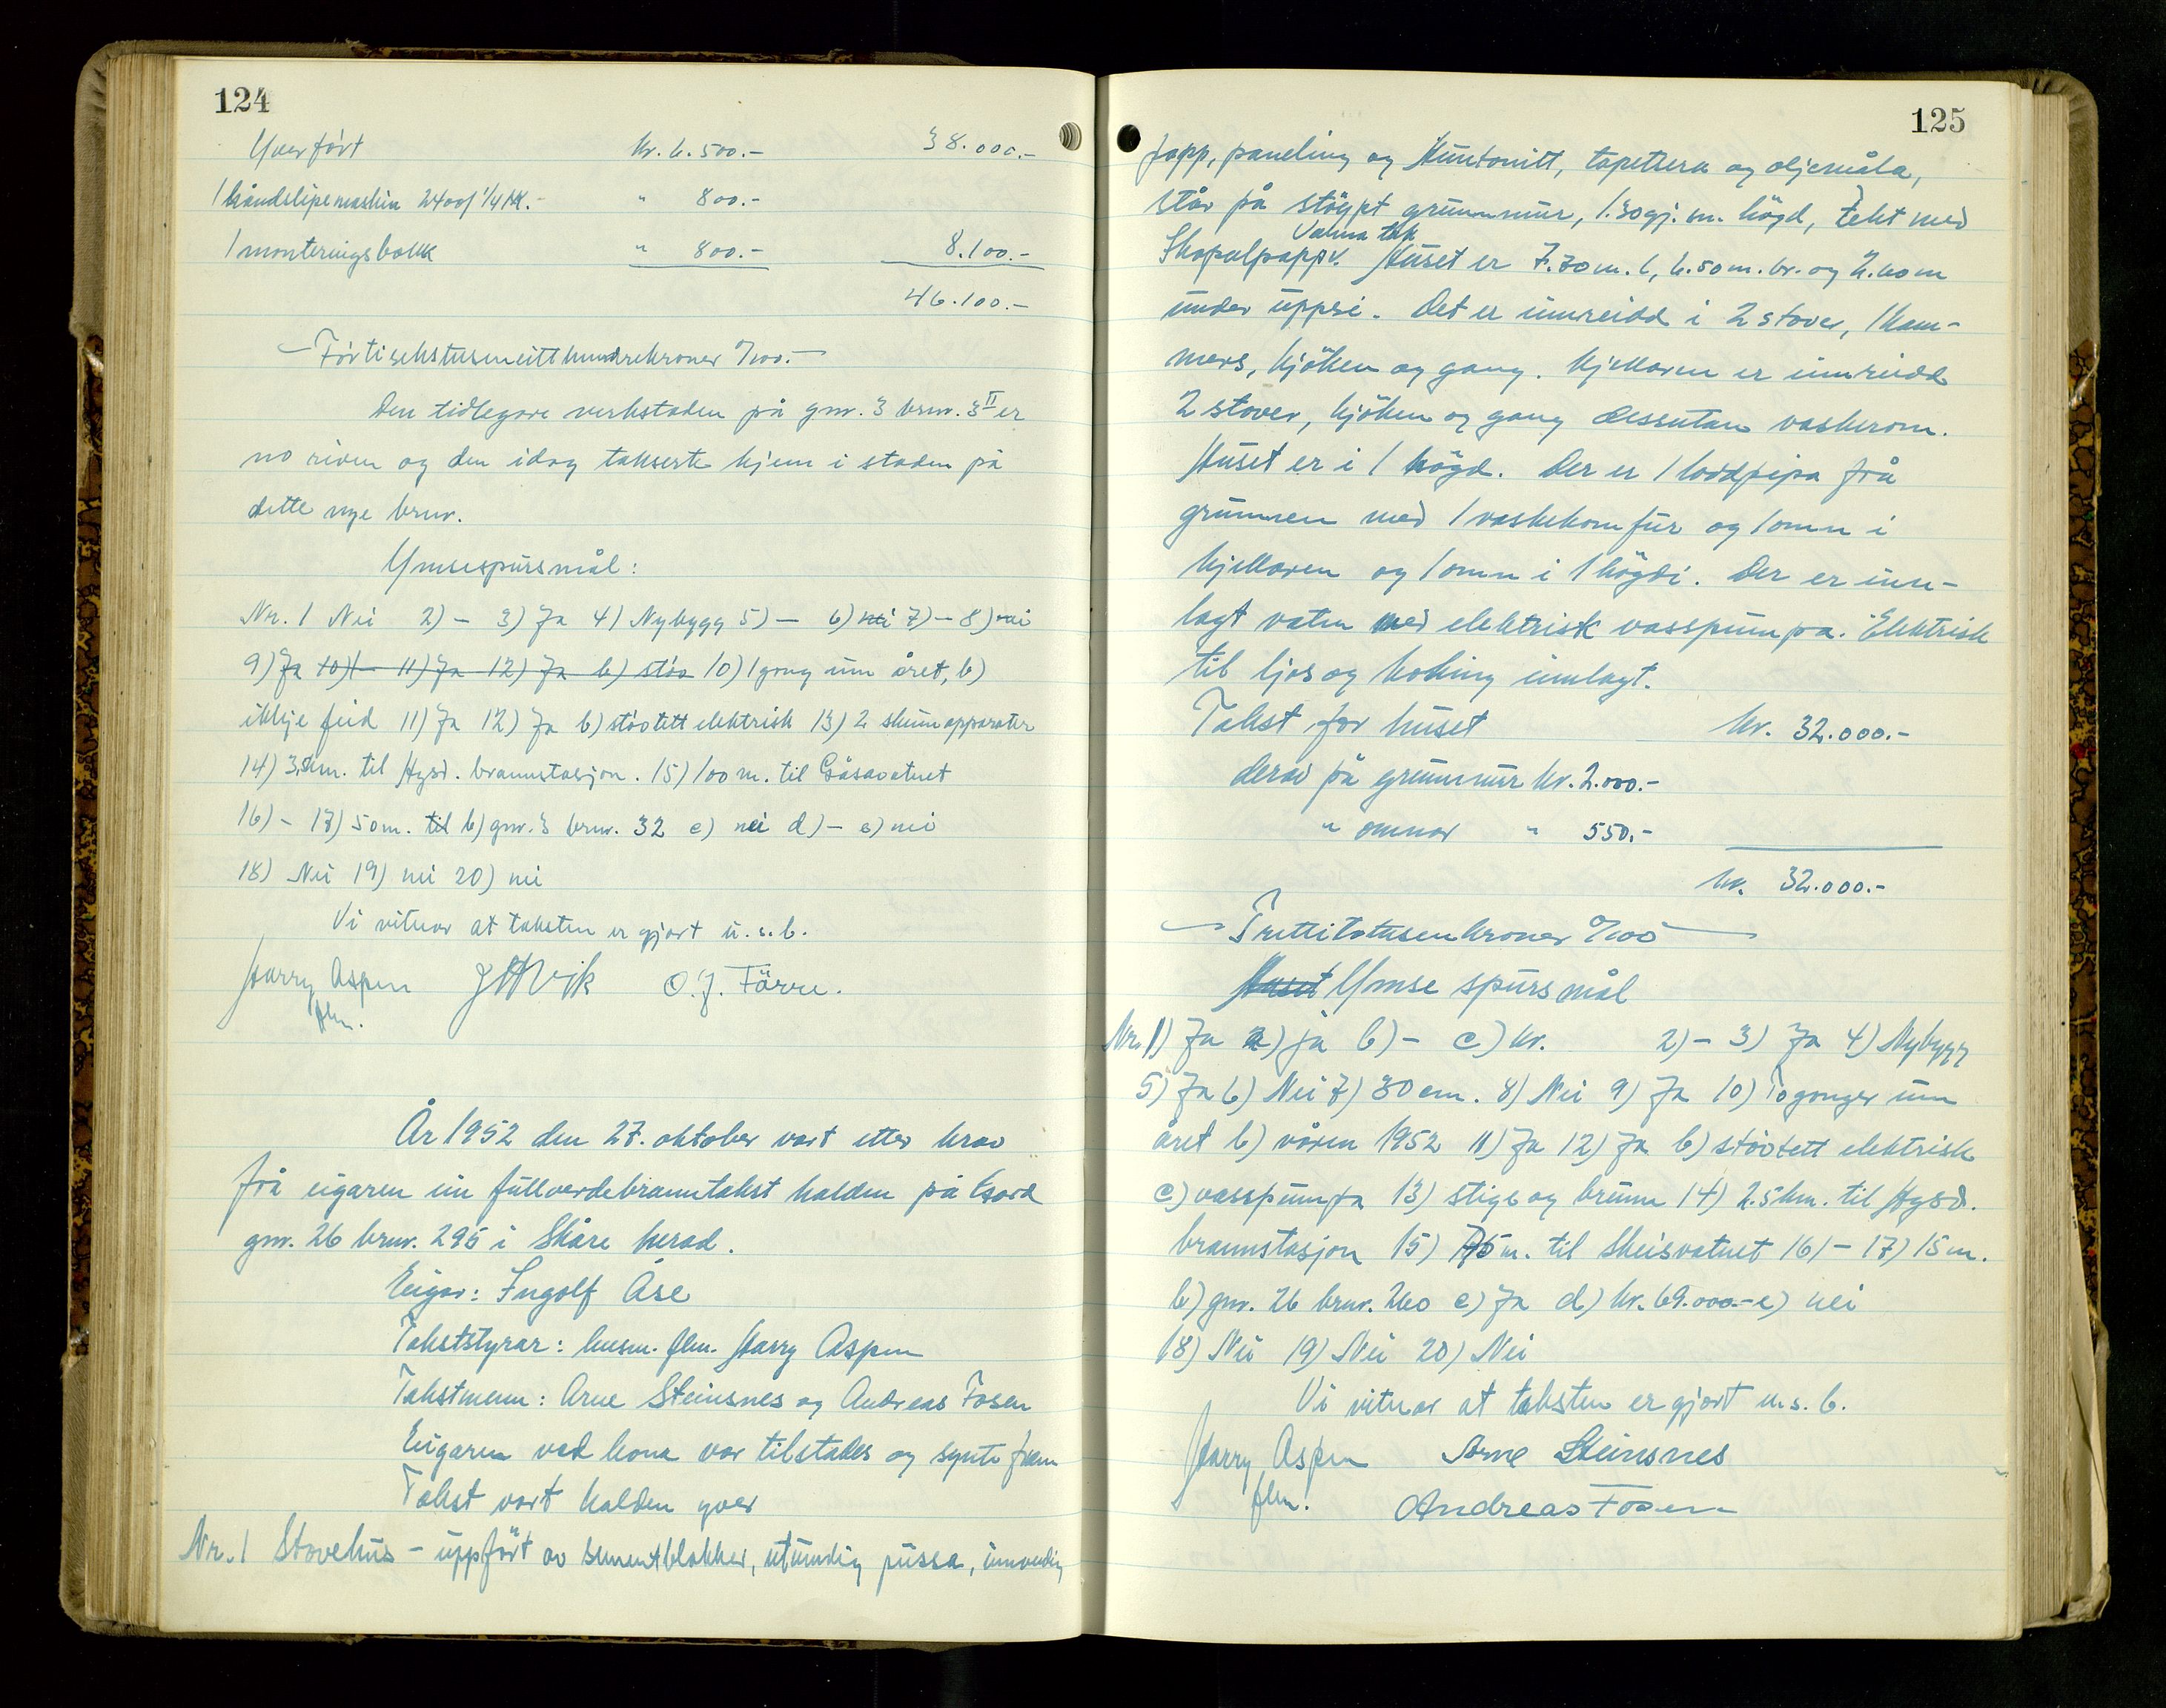 124
Yverført kr. 6.500.- 38.000.-
1 håndslipemaskin 2400 1/4 HK.- " 800.-
1 monteringsbokk " 800.- 8.100.-
46.100.-
- Førtisekstuseneitthundrekroner 0/00.-
Den tidlegare verkstaden på gnr. 3 brnr. 3 II er
no riven og den idag takserte kjem i staden på
dette nye brnr.
Ymsespursmål:
Nr. 1 Nei 2) - 3) Ja 4) Nybygg 5) - 6) nei 7) - 8) nei
9) Ja 10) - 11) Ja 12) Ja b) støv 10) 1 gong um året, b)
ikkje feid 11) Ja 12) Ja b) støvtett elektrisk 13) 2 skumapparater
14) 3,5km. til Hgsd. brannstasjon. 15) 100 m. til Gåsavatnet
16) - 17) 50m. til b) gnr. 3 brnr. 32 c) nei d) - e) nei
18) Nei 19) nei 20) nei
Vi vitnar at taksten er gjort u.s.b.
Harry Aspen J H Vik O. J. Førre.
flm.
År 1952 den 27. oktober vart etter krav
frå eigaren ein fullverdebranntakst halden på Gard
gnr. 26 brnr. 295 i Skåre herad.
Eigar: Ingolf Åse
Takststyrar: lensm. flm. Harry Aspen
Takstmenn: Arne Steinsnes og Andreas Fosen
Eigaren ved kona var tilstades og synte fram
Takst vart halden yver
Nr. 1 Stovehus - uppført av sementblokker, utvendig pussa, innvendig
125
papp, paneling og Huntonitt, tapetsera og oljemåla,
står på støypt grunnmur, 1.30 gj. m. høgd, tekt med
Valma tak
Skopalpapp. Huset er 7.70 m. l, 6.50 m. br. og 2.40 m
under uppsi. Det er innreidd i 2 stover, 1 kam-
mers, kjøken og gang. Kjellaren er innreidd
2 stover, kjøken og gang dessutan vaskerom.
Huset er i 1 høgd. Der er 1 loddpipa frå
grunnen med 1 vaskekomfur og 1 omn i
kjellaren og 1 omn i 1 høgdi. Der er inn-
lagt vatn med elektrisk vasspumpa. Elektrisk
til ljos og koking innlagt.
Takst for huset kr. 32.000.-
derav på grunnmur kr. 2.000.-
" omnar " 550.-
kr. 32.000.-
- Trettitotusenkroner 0/00 -
Huset Ymse spursmål
Nr. 1) Ja a) ja b) - c) kr. 2) - 3) Ja 4) Nybygg
5) Ja 6) Nei 7) 30 cm. 8) Nei 9) Ja 10) To gonger um
året b) våren 1952 11) Ja 12) Ja b) støvtett elektrisk
c) vasspumpa 13) stige og brunn 14) 2.5 km. til Hgsd.
brannstasjon 15) 75 m. til Skeisvatnet 16) - 17) 15 m.
b) gnr. 26 brnr. 260 c) Ja d) kr. 69.000.- e) nei
18) Nei 19) Nei 20) Nei
Vi vitnar at taksten er gjort u.s.b.
Harry Aspen Arne Steinsnes
flm. Andreas Fosen